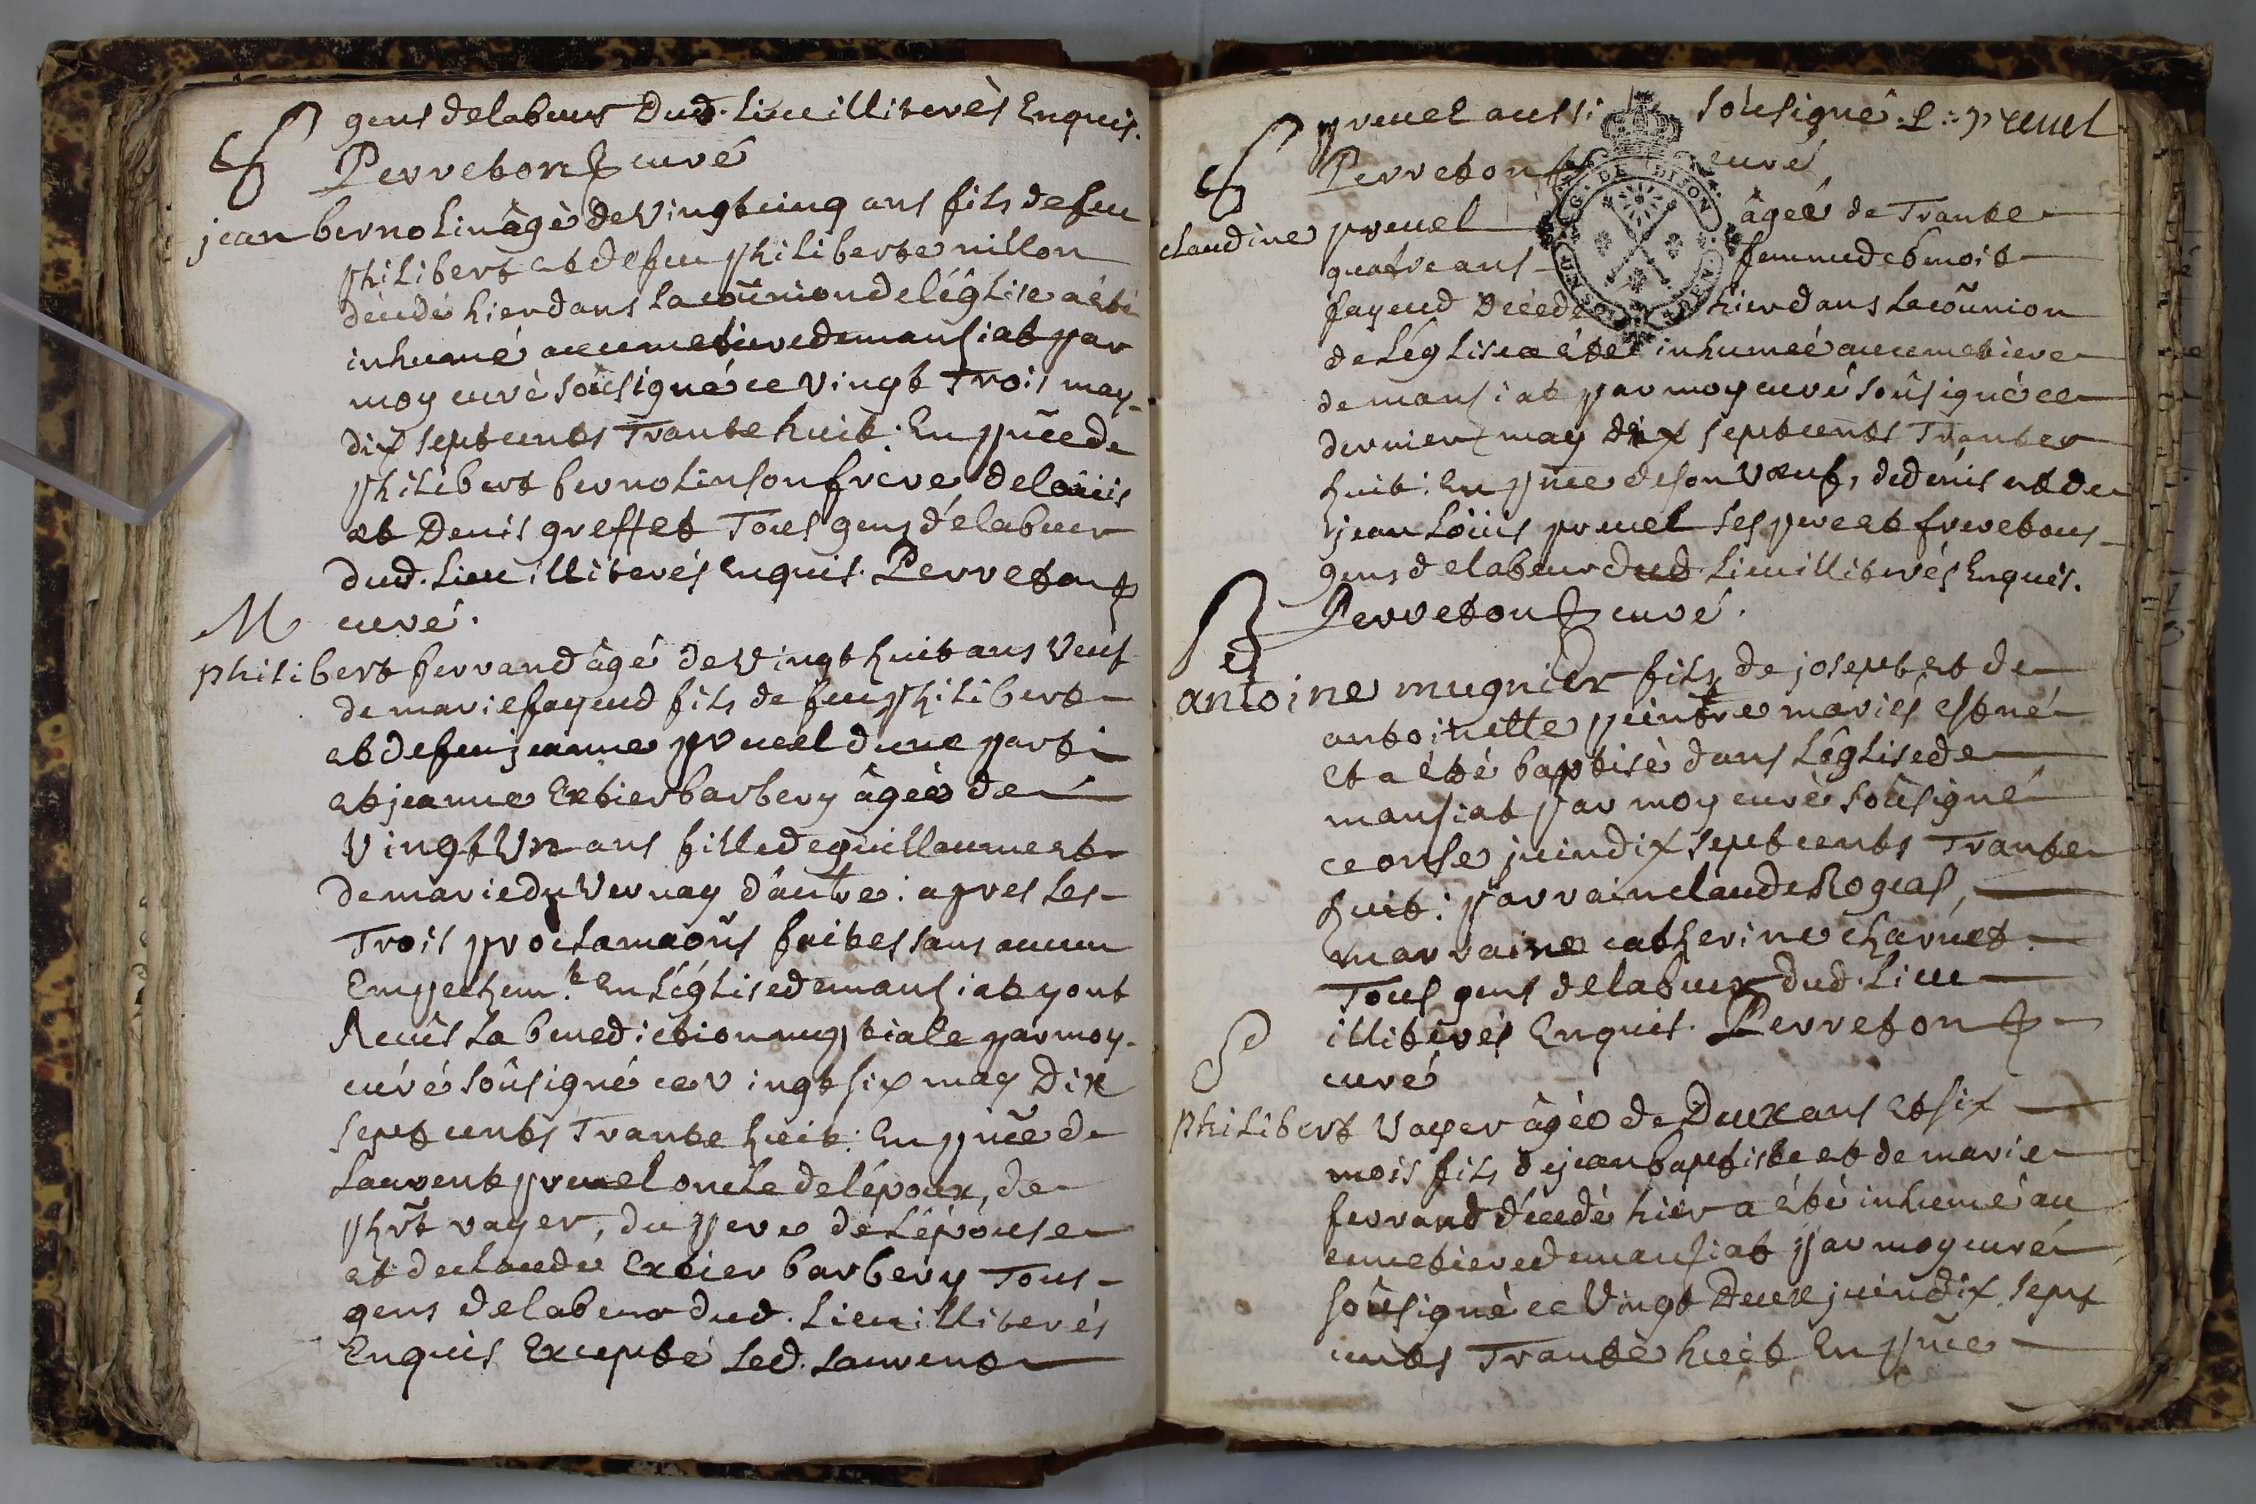 gens de labeur dud. lieu illiterès Enquis.
Perreton curé
S
jean bernolin âgè de vingtcinq ans fils de feu
philibert et de feu philiberte nillon
décédé hier dans la coũnion de lêglise a été
inhumé au cimetiere de mansiat par
moy curè soûsigné ce vingt Trois may
dix sept cents Trante huit. En pñce de
philibert bernolin son frere de loüis
et Denis greffet Tous gens de labeur
dud. lieu illiterés enquis. Perreton
curé.
M
philibert ferrand âgé de vingt huit ans veuf
de marie fayend fils de feu philibert
et de feu jeanne pruuel dune part
et jeanne Extier barbery âgeè de
vingt un ans fille de guillaume et
de marie du vernay d'autre: apres les
Trois proclamaõns faites sans aucun
Empechem.t En l'églisede mansiat y ont
Recûs la benediction nuptiale par moy
curé soûsigné ce vingt six may Dix
sept cents Trante huit: En pñce de
laurent pruuel oncle de lépoux, de
phr̃t vayer, du pere de lépouse
et de claude Extier barbery Tous
gens de labeur dud. lieu illiterés
Enquis Excepté led. laurent
pruuel aussi soûsigné. L: pruuel
Perreton curé
S
claudine pruuel âgeé de Trante
quatre ans femme de benoit
fayend Décédeé hier dans la coũnion
de Léglise a été inhumeé au cimetiere
de mansiat par moy curé soûsigné ce
dernier may dix sept cents Trante
huit: En pñce de son veuf, de denis et de
jean loüis pruuel ses pere et frere tous
gens de labeur dud. lieu illiterés Enquis.
Perreton curé.
B
antoine mugnier fils de josept et de
antoinette peintre mariés est né
et a été baptisè dans l'églisede
mansiat par moy curé soûsigné
ce onse juin dix sept cents Trante
huit: parrain claude Rogeas,
marraine catherine charuet.
Tous gens de labeur dud. lieu
illiterés Enquis. Perreton
curé
S
philibert vayer âgée de Deux ans et six
mois fils de jean baptiste et de marie
ferrand décédé hier a été inhumé au
cimetiere de mansiat par moy curé
soûsigné ce vingt Deux juin dix sept
cents Trante huit En pñce
GEN. DE DIJON